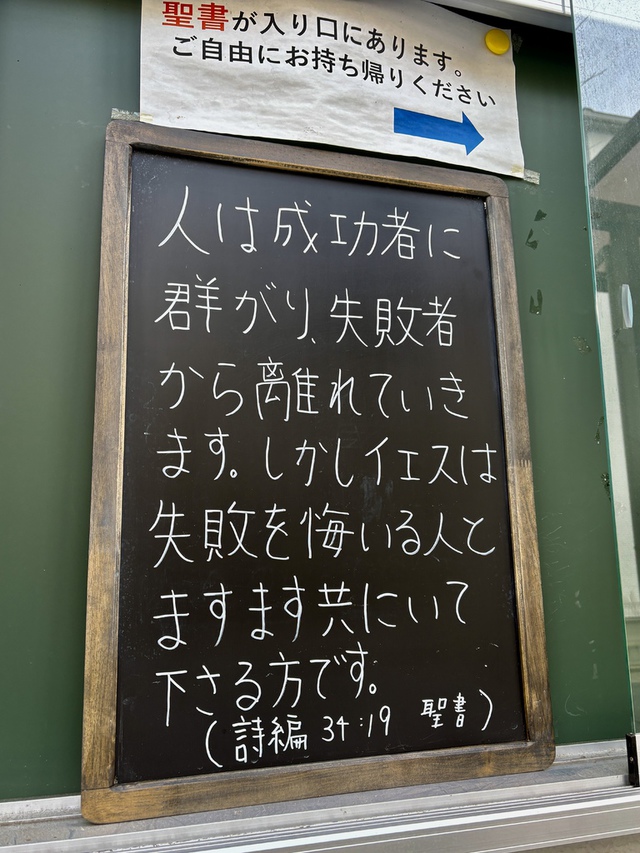 聖書が入り口にあります。
ご自由にお持ち帰りください
人は成功者に
群がり、失敗者
から離れていき
ます。しかしイエスは
失敗を悔いる人と
ますます共にいて
下さる方です。
(詩編 34:19 聖書)